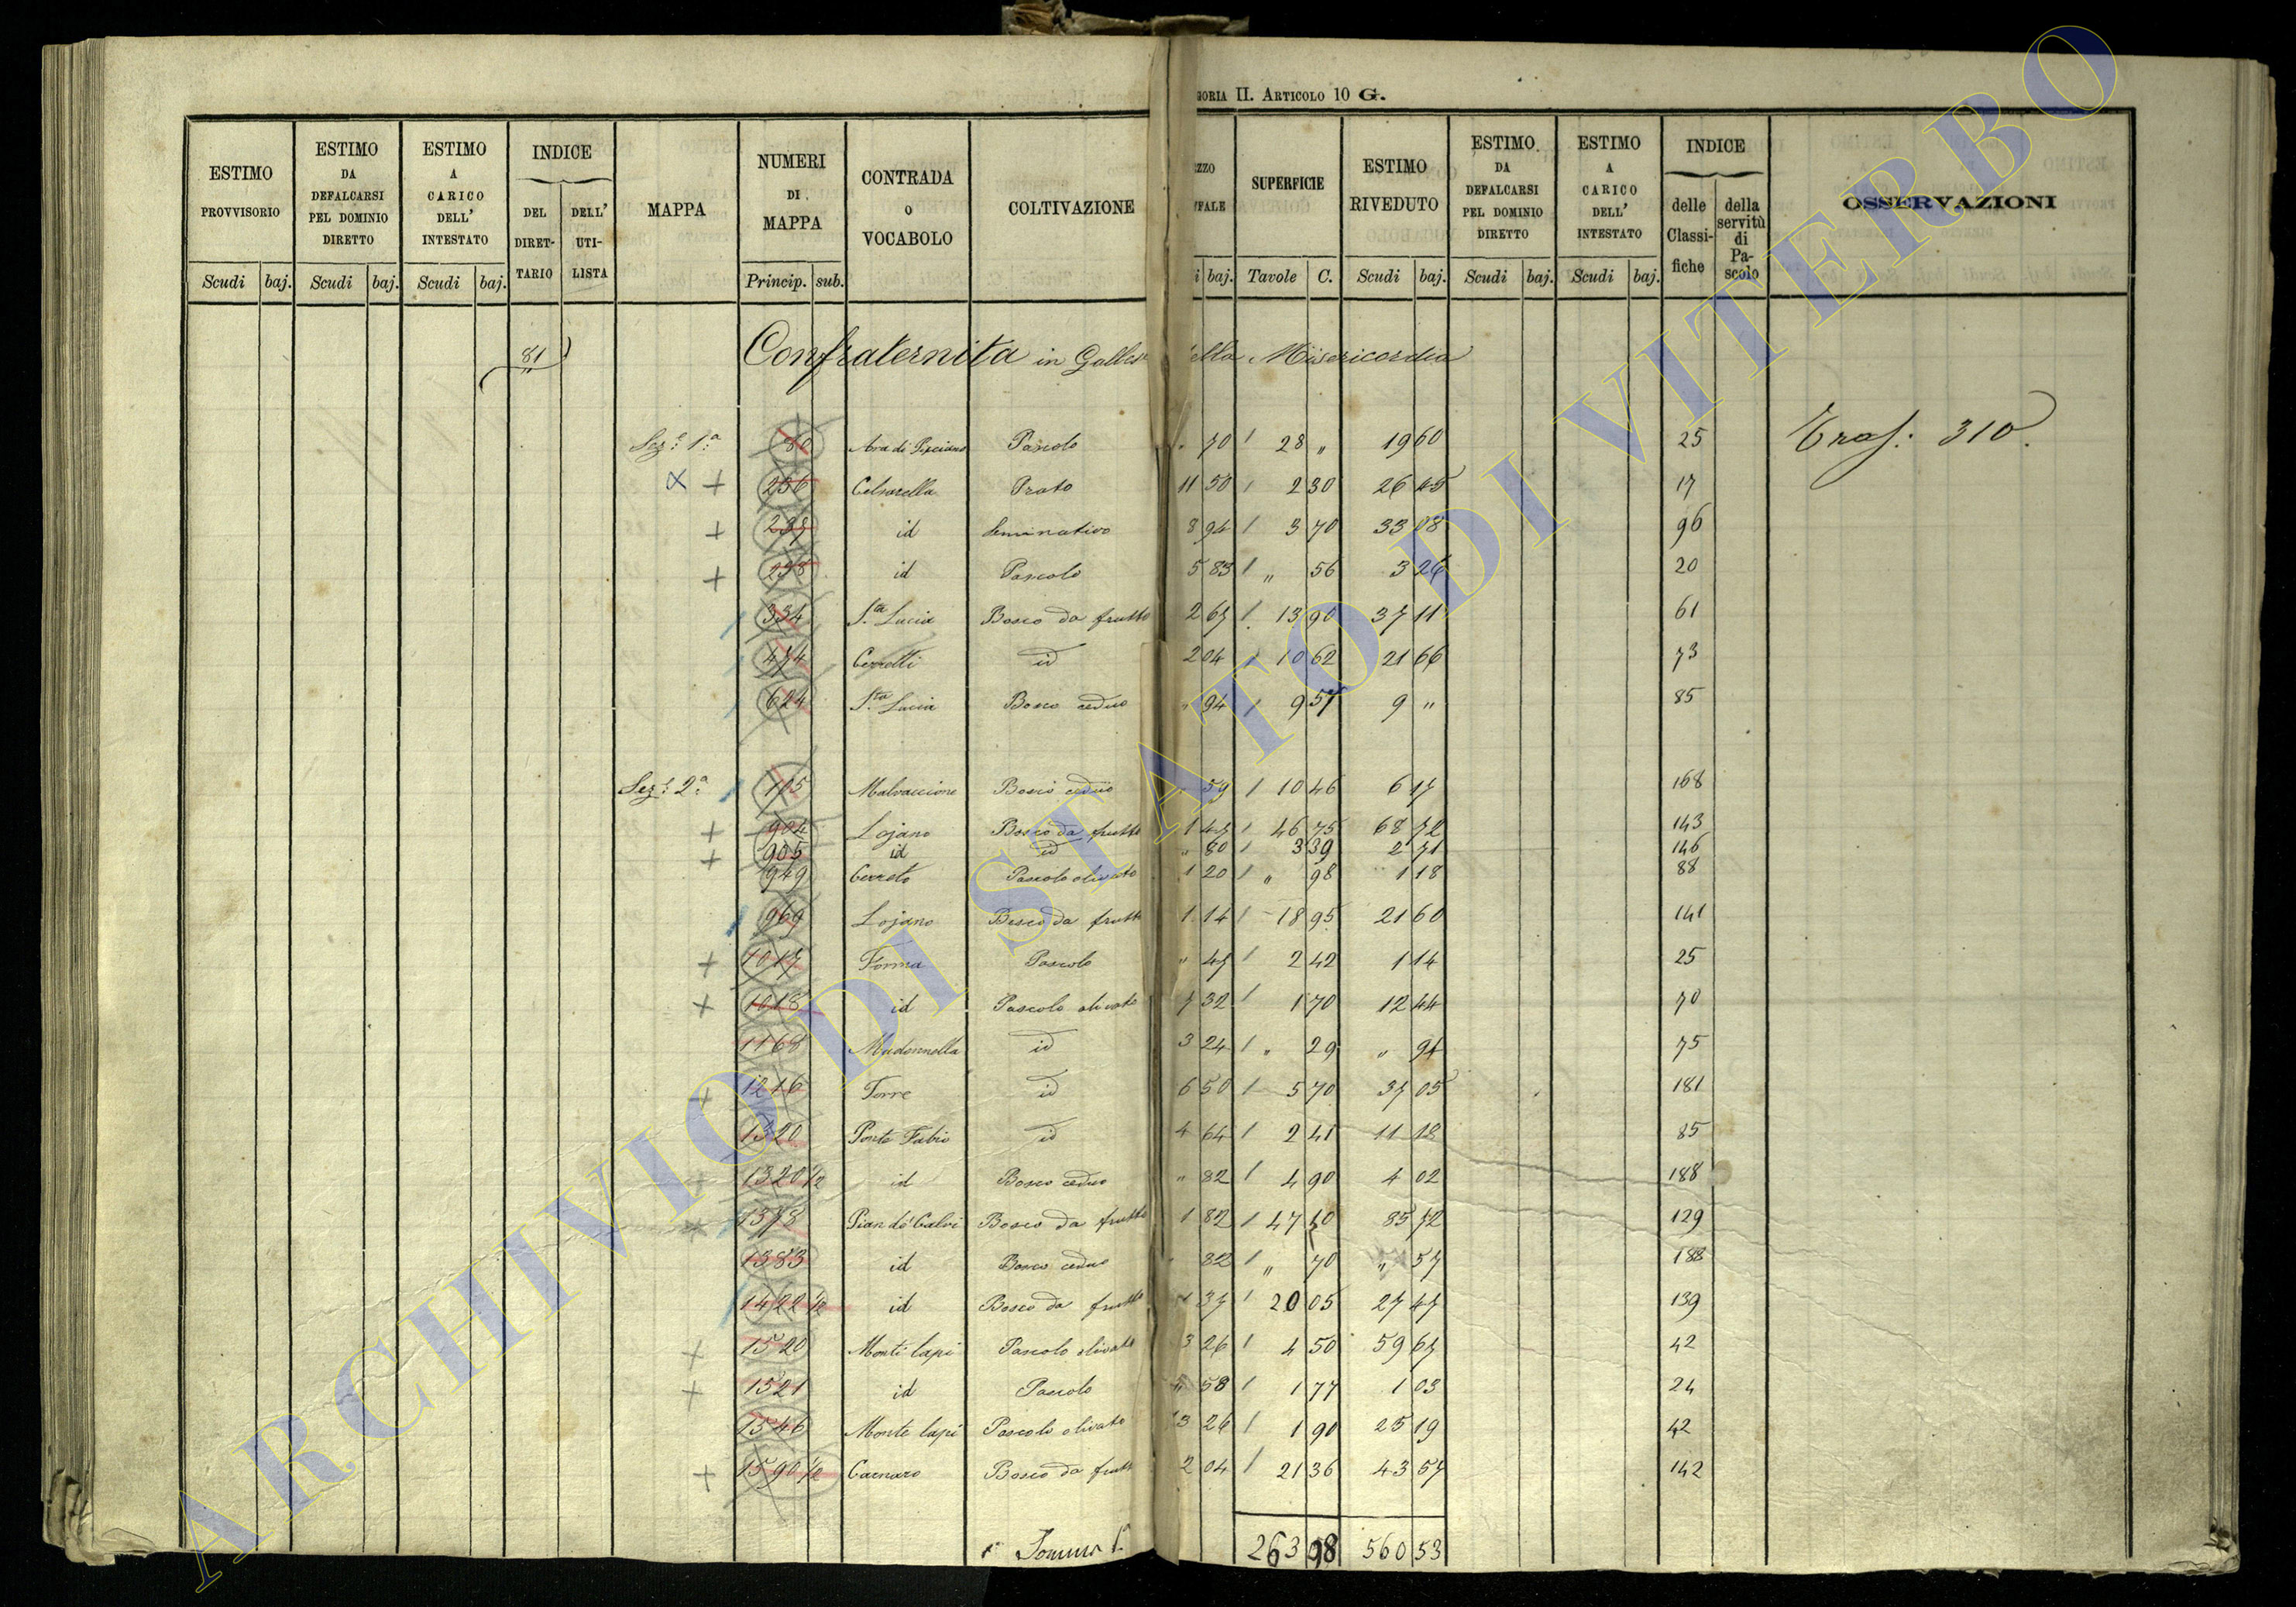 GORIA II. ARTICOLO 10 G.
ESTIMO PROVVISORIO
ESTIMO DA DEFALCARSI PEL DOMINIO DIRETTO
ESTIMO A CARICO DELL' INTESTATO
INDICE
DEL DIRET-TARIO
DELL' UTI-LISTA
MAPPA
NUMERI DI MAPPA
CONTRADA O VOCABOLO
COLTIVAZIONE
SUPERFICIE
ESTIMO RIVEDUTO
ESTIMO DA DEFALCARSI PEL DOMINIO DIRETTO
ESTIMO A CARICO DELL' INTESTATO
INDICE
delle Classi-fiche
della servitù di Pa-scolo
OSSERVAZIONI
Scudi baj. Scudi baj. Scudi baj. Princip. sub. baj. Tavole C. Scudi baj. Scudi baj. Scudi baj.
81 Confraternita in Galles ella Misericordia
Sez.e 1.a 80 Ara di Pasolo " 70 28 " 19 60 25 Tras: 310.
+ 256 Celsarella Prato 11 50 2 30 26 45 17
+ 257 id Seminativo 8 94 3 70 33 08 96
+ 258 id Pascolo 5 83 " 56 3 26 20
334 S.a Lucia Bosco da frutto 2 67 13 90 37 11 61
474 Cerretti id 2 04 10 62 21 66 73
624 S.ta Lucia Bosco ceduo " 94 9 57 9 " 85
Sez.e 2.a 105 Malvaccione Bosco ceduo 59 10 46 6 17 168
+ 904 Lojano Bosco da frutto 1 47 46 75 68 72 143
+ 905 id id " 80 3 39 2 71 146
949 Cerreto Pascolo olivato 1 20 " 98 1 18 88
969 Lojano Bosco da frutto 1 14 18 95 21 60 141
+ 1017 Forma Pascolo " 47 2 42 1 14 25
+ 1018 id Pascolo olivato 7 32 1 70 12 44 70
1168 Madonnella id 3 24 " 29 " 94 75
+ 1216 Torre id 6 50 5 70 37 05 181
1320 Ponte Fabio id 4 64 2 41 11 18 85
+ 1320 1/2 id Bosco ceduo " 82 4 90 4 02 188
1378 Pian de' Calvi Bosco da frutto 1 82 47 10 85 72 129
1383 id Bosco ceduo 82 " 70 " 57 188
1422 1/2 id Bosco da frutto 1 37 20 05 27 47 139
+ 1520 Monte lapi Pascolo olivato 3 26 4 50 59 67 42
+ 1521 id Pascolo " 58 1 77 1 03 24
1546 Monte lapi Pascolo olivato 13 26 1 90 25 19 42
+ 1590 1/2 Carnaro Bosco da frutt 2 04 21 36 43 57 142
Somma 263 98 560 53
ARCHIVIO DI STATO DI VITERBO